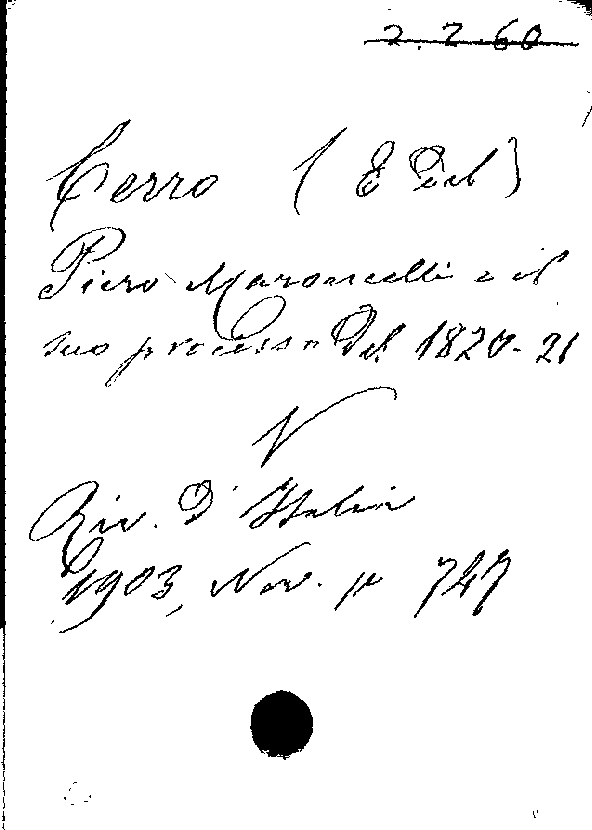 2.2.60
Cerro (E Del)
Piero Maroncelli e il
suo processo del 1820-21
V
Riv. D'Italia
1903, Nov. p 747